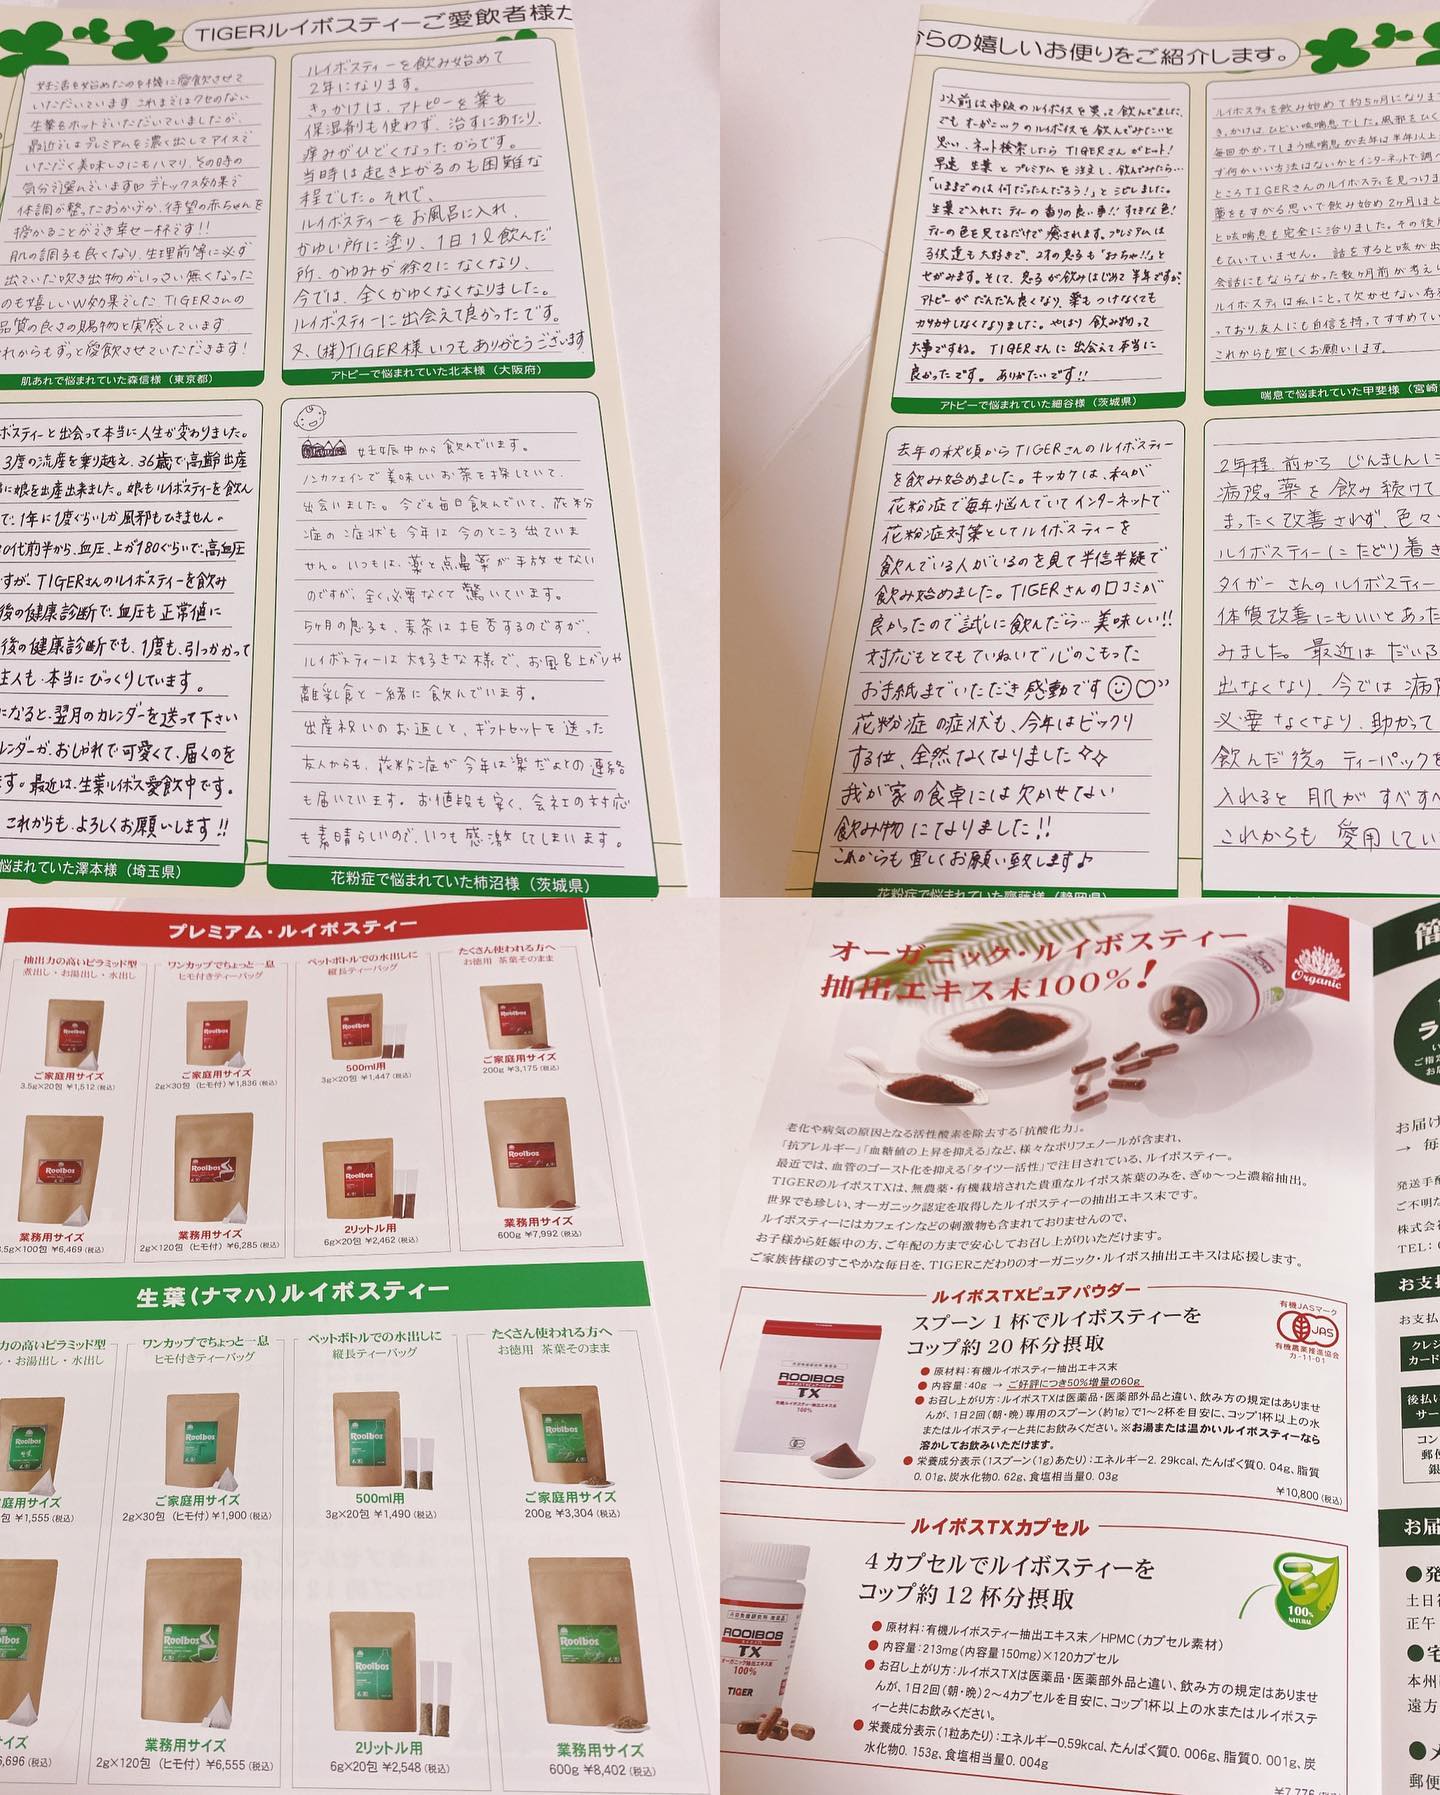 TIGERルイボスティーご愛飲者様た
妊活を始めたのを機に愛飲させて
いただいています これまではクセのない
生葉をホットでいただいていましたが、
最近ではプレミアムを濃く出してアイスで
いただく美味しさにもハマり、その時の
気分で選んでいます デトックス効果で
体調が整ったおかげか、待望の赤ちゃんを
授かることができ幸せ一杯です!!
肌の調子も良くなり、生理前等に必ず
出ていた吹き出物がいっさい無くなった
のも嬉しいW効果でした TIGERさんの
品質の良さの賜物と実感しています
れからもずっと愛飲させていただきます!
肌あれで悩まれていた森信様(東京都)
ルイボスティーを飲み始めて
2年になります。
きっかけは、アトピーを薬も
保湿剤も使わず、治すにあたり、
痒みがひどくなったからです。
当時は起き上がるのも困難な
程でした。それで、
ルイボスティーをお風呂に入れ、
かゆい所に塗り、1日1ℓ飲んだ
所、かゆみが徐々になくなり、
今では、全くかゆくなくなりました。
ルイボスティーに出会えて良かったです。
又、(株)TIGER様いつもありがとうございます
アトピーで悩まれていた北本様(大阪府)
ボスティーと出会って本当に人生が変わりました。
3度の流産を乗り越え、36歳で高齢出産
に娘を出産出来ました。娘もルイボスティーを飲ん
で、1年に1度ぐらいしか風邪もひきません。
0代前半から、血圧、上が180ぐらいで高血圧
すが、TIGERさんのルイボスティーを飲み
後の健康診断で、血圧も正常値に
後の健康診断でも、1度も、引っかかって
主人も、本当にびっくりしています。
になると、翌月のカレンダーを送って下さい
レンダーが、おしゃれで可愛くて、届くのを
ます。最近は、生葉ルイボス愛飲中です。
これからも、よろしくお願いします!!
悩まれていた澤本様(埼玉県)
妊娠中から飲んでいます。
ノンカフェインで美味しいお茶を探していて、
出会いました。今でも毎日飲んでいて、花粉
症の症状も今年は今のところ出ていま
せん。いつもは、薬と点鼻薬が手放せない
のですが、全く必要なくて驚いています。
5ヶ月の息子も、麦茶は拒否するのですが、
ルイボスティーは大好きな様で、お風呂上がりや
離乳食と一緒に飲んでいます。
出産祝いのお返しと、ギフトセットを送った
友人からも、花粉症が今年は楽だよとの連絡
も届いています。お値段も安く、会社の対応
も素晴らしいので、いつも感激してしまいます。
花粉症で悩まれていた柿沼様(茨城県)
からの嬉しいお便りをご紹介します。
以前は市販のルイボスを買って飲んでました。
でもオーガニックのルイボスを飲んでみたいと
思い、ネット検索したら TIGERさんがヒット!
早速 生葉とプレミアムを注文し、飲んでみたら…
「いままでのは何だったんだろう!」とシビしました。
生葉で入れたティーの香りの良い事!! すてきな色!
ティーの色を見てるだけで癒されます。プレミアムは
子供達も大好きで、2才の息子も"おちゃ!!"と
せがみます。そして、息子が飲みはじめて半年ですが、
アトピーがだんだん良くなり、薬もつけなくても
カサカサしなくなりました。やはり飲み物って
大事ですね。TIGERさんに出会えて本当に
良かったです。ありがたいです!!
アトピーで悩まれていた細谷様(茨城県)
ルイボスティを飲み始めて約5ヶ月になりま
きっかけは、ひどい咳喘息でした。風邪をひく
毎回かかってしまう咳喘息が去年は半年以上
ず何かいい方法はないかとインターネットで調べ
ところTIGERさんのルイボスティを見つけま
薬をもすがる思いで飲み始め2ヶ月ほど
と咳喘息も完全に治りました。その後
もひいていません。話をすると咳が出
会話にもならなかった数ヶ月前が考え
ルイボスティは私にとって欠かせない存
っており、友人にも自信を持ってすすめてい
これからも宜しくお願いします。
喘息で悩まれていた甲斐様(宮崎
去年の秋頃からTIGERさんのルイボスティー
を飲み始めました。キッカケは、私が
花粉症で毎年悩んでいてインターネットで
花粉症対策としてルイボスティーを
飲んでいる人がいるのを見て半信半疑で
飲み始めました。TIGERさんの口コミが
良かったので試しに飲んだら…美味しい!!
対応もとてもていねいで心のこもった
お手紙までいただき感動です☺♡"
花粉症の症状も、今年はビックリ
する位、全然なくなりました✧✧
我が家の食卓には欠かせない
飲み物になりました!!
これからも宜しくお願い致します♪
花粉症で悩まれていた齋藤様(静岡県)
2年程、前から じんましんに
病院の薬を飲み続けて
まったく改善されず、色々
ルイボスティーにたどり着き
タイガーさんのルイボスティー
体質改善にもいいとあった
みました。最近はだいぶ
出なくなり、今では病院
必要なくなり、助かって
飲んだ後のティーパックを
入れると肌がすべすべ
これからも愛用してい
プレミアム・ルイボスティー
抽出力の高いピラミッド型
煮出し・お湯出し・水出し
ワンカップでちょっと一息
ヒモ付きティーバッグ
ペットボトルでの水出しに
縦長ティーバッグ
たくさん使われる方へ
お徳用 茶葉そのまま
Rooibos
Rooibos
Rooibos
Rooibos
ご家庭用サイズ
3.5g×20包 ¥1,512(税込)
ご家庭用サイズ
2g×30包(ヒモ付)¥1,836(税込)
500ml用
3g×20包 ¥1,447(税込)
ご家庭用サイズ
200g ¥3,175(税込)
Rooibos
Rooibos
Rooibos
Rooibos
業務用サイズ
3.5g×100包 ¥6,469(税込)
業務用サイズ
2g×120包(ヒモ付)¥6,285(税込)
2リットル用
6g×20包 ¥2,462(税込)
業務用サイズ
600g ¥7,992(税込)
生葉(ナマハ)ルイボスティー
力の高いピラミッド型
・お湯出し・水出し
ワンカップでちょっと一息
ヒモ付きティーバッグ
ペットボトルでの水出しに
縦長ティーバッグ
たくさん使われる方へ
お徳用 茶葉そのまま
Rooibos
Rooibos
Rooibos
Rooibos
家庭用サイズ
包 ¥1,555(税込)
ご家庭用サイズ
2g×30包(ヒモ付)¥1,900(税込)
500ml用
3g×20包 ¥1,490(税込)
ご家庭用サイズ
200g ¥3,304(税込)
Rooibos
Rooibos
Rooibos
イズ
6,696(税込)
業務用サイズ
2g×120包(ヒモ付)¥6,555(税込)
2リットル用
6g×20包 ¥2,548(税込)
業務用サイズ
600g ¥8,402(税込)
オーガニック・ルイボスティー
抽出エキス末100%!
Organic
老化や病気の原因となる活性酸素を除去する「抗酸化力」。
「抗アレルギー」「血糖値の上昇を抑える」など、様々なポリフェノールが含まれ、
最近では、血管のゴースト化を抑える「タイツー活性」で注目されている、ルイボスティー。
TIGERのルイボスTXは、無農薬・有機栽培された貴重なルイボス茶葉のみを、ぎゅ〜っと濃縮抽出。
世界でも珍しい、オーガニック認定を取得したルイボスティーの抽出エキス末です。
ルイボスティーにはカフェインなどの刺激物も含まれておりませんので、
お子様から妊娠中の方、ご年配の方まで安心してお召し上がりいただけます。
ご家族皆様のすこやかな毎日を、TIGERこだわりのオーガニック・ルイボス抽出エキスは応援します。
ルイボスTXピュアパウダー
スプーン1杯でルイボスティーを
コップ約20杯分摂取
有機JASマーク
JAS
有機農業推進協会
カ-11-01
ROOIBOS
TX
有機ルイボスティー抽出エキス末
100%
●原材料:有機ルイボスティー抽出エキス末
●内容量:40g → ご好評につき50%増量の60g
●お召し上がり方:ルイボスTXは医薬品・医薬部外品と違い、飲み方の規定はありませ
んが、1日2回(朝・晩)専用のスプーン(約1g)で1〜2杯を目安に、コップ1杯以上の水
またはルイボスティーと共にお飲みください。※お湯または温かいルイボスティーなら
溶かしてお飲みいただけます。
●栄養成分表示(1スプーン(1g)あたり):エネルギー2.29kcal、たんぱく質0.04g、脂質
0.01g、炭水化物0.62g、食塩相当量0.03g
¥10,800(税込)
ルイボスTXカプセル
4カプセルでルイボスティーを
コップ約12杯分摂取
100%
NATURAL
ROOIBOS
TX
オーガニック抽出エキス末
100%
TIGER
●原材料:有機ルイボスティー抽出エキス末/HPMC(カプセル素材)
●内容量:213mg(内容量150mg)×120カプセル
●お召し上がり方:ルイボスTXは医薬品・医薬部外品と違い、飲み方の規定はありませ
んが、1日2回(朝・晩)2〜4カプセルを目安に、コップ1杯以上の水またはルイボステ
ィーと共にお飲みください。
●栄養成分表示(1粒あたり):エネルギー0.59kcal、たんぱく質0.006g、脂質0.001g、炭
水化物0.153g、食塩相当量0.004g
¥7,776
簡
ラ
お届け
→ 毎
発送手
ご不明な
株式会社
TEL:
お支払
お支払
クレジ
カード
後払い
サー
コン
郵便
銀
お届
●発
土日祝
正午
●宅
本州
遠方
郵便